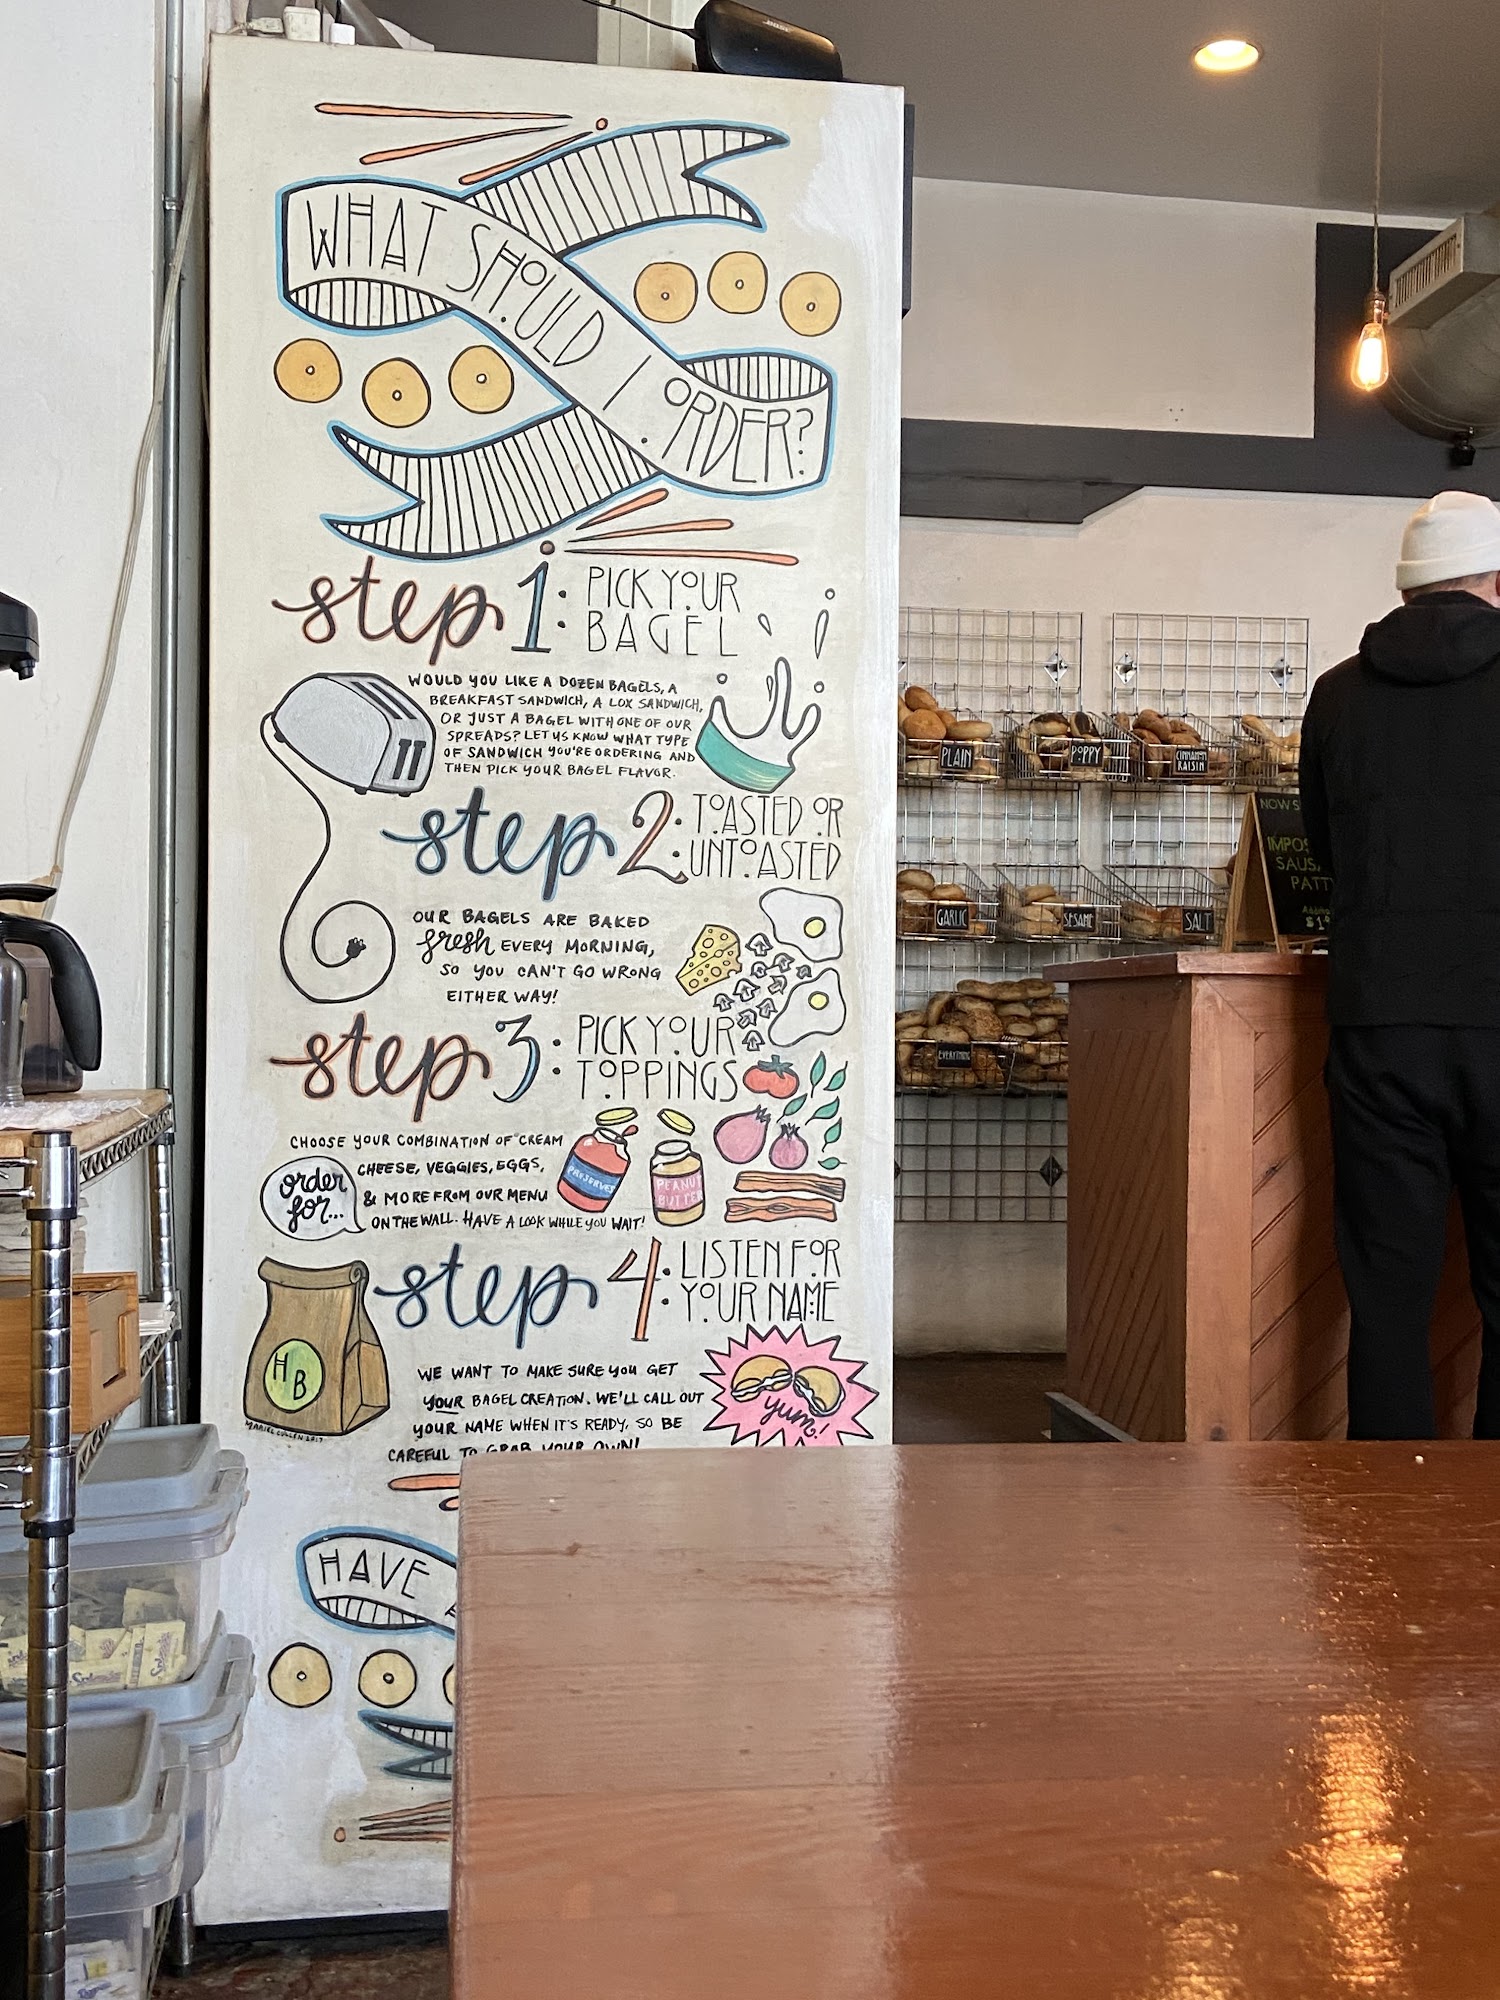 WHAT SHOULD I ORDER?
step 1: PICK YOUR
BAGEL
WOULD YOU LIKE A DOZEN BAGELS, A
BREAKFAST SANDWICH, A LOX SANDWICH,
OR JUST A BAGEL WITH ONE OF OUR
SPREADS? LET US KNOW WHAT TYPE
OF SANDWICH YOU'RE ORDERING AND
THEN PICK YOUR BAGEL FLAVOR.
step 2: TOASTED OR
UNTOASTED
OUR BAGELS ARE BAKED
fresh EVERY MORNING,
SO YOU CAN'T GO WRONG
EITHER WAY!
step 3: PICK YOUR
TOPPINGS
CHOOSE YOUR COMBINATION OF CREAM
CHEESE, VEGGIES, EGGS,
& MORE FROM OUR MENU
ON THE WALL. HAVE A LOOK WHILE YOU WAIT!
order
for...
PRESERVES
PEANUT
BUTTER
step 4: LISTEN FOR
YOUR NAME
WE WANT TO MAKE SURE YOU GET
YOUR BAGEL CREATION. WE'LL CALL OUT
YOUR NAME WHEN IT'S READY, SO BE
CAREFUL TO GRAB YOUR OWN!
HB
yum!
HAVE
PLAIN
POPPY
CINNAMON
RAISIN
GARLIC
SESAME
SALT
EVERYTHING
NOW
Splenda